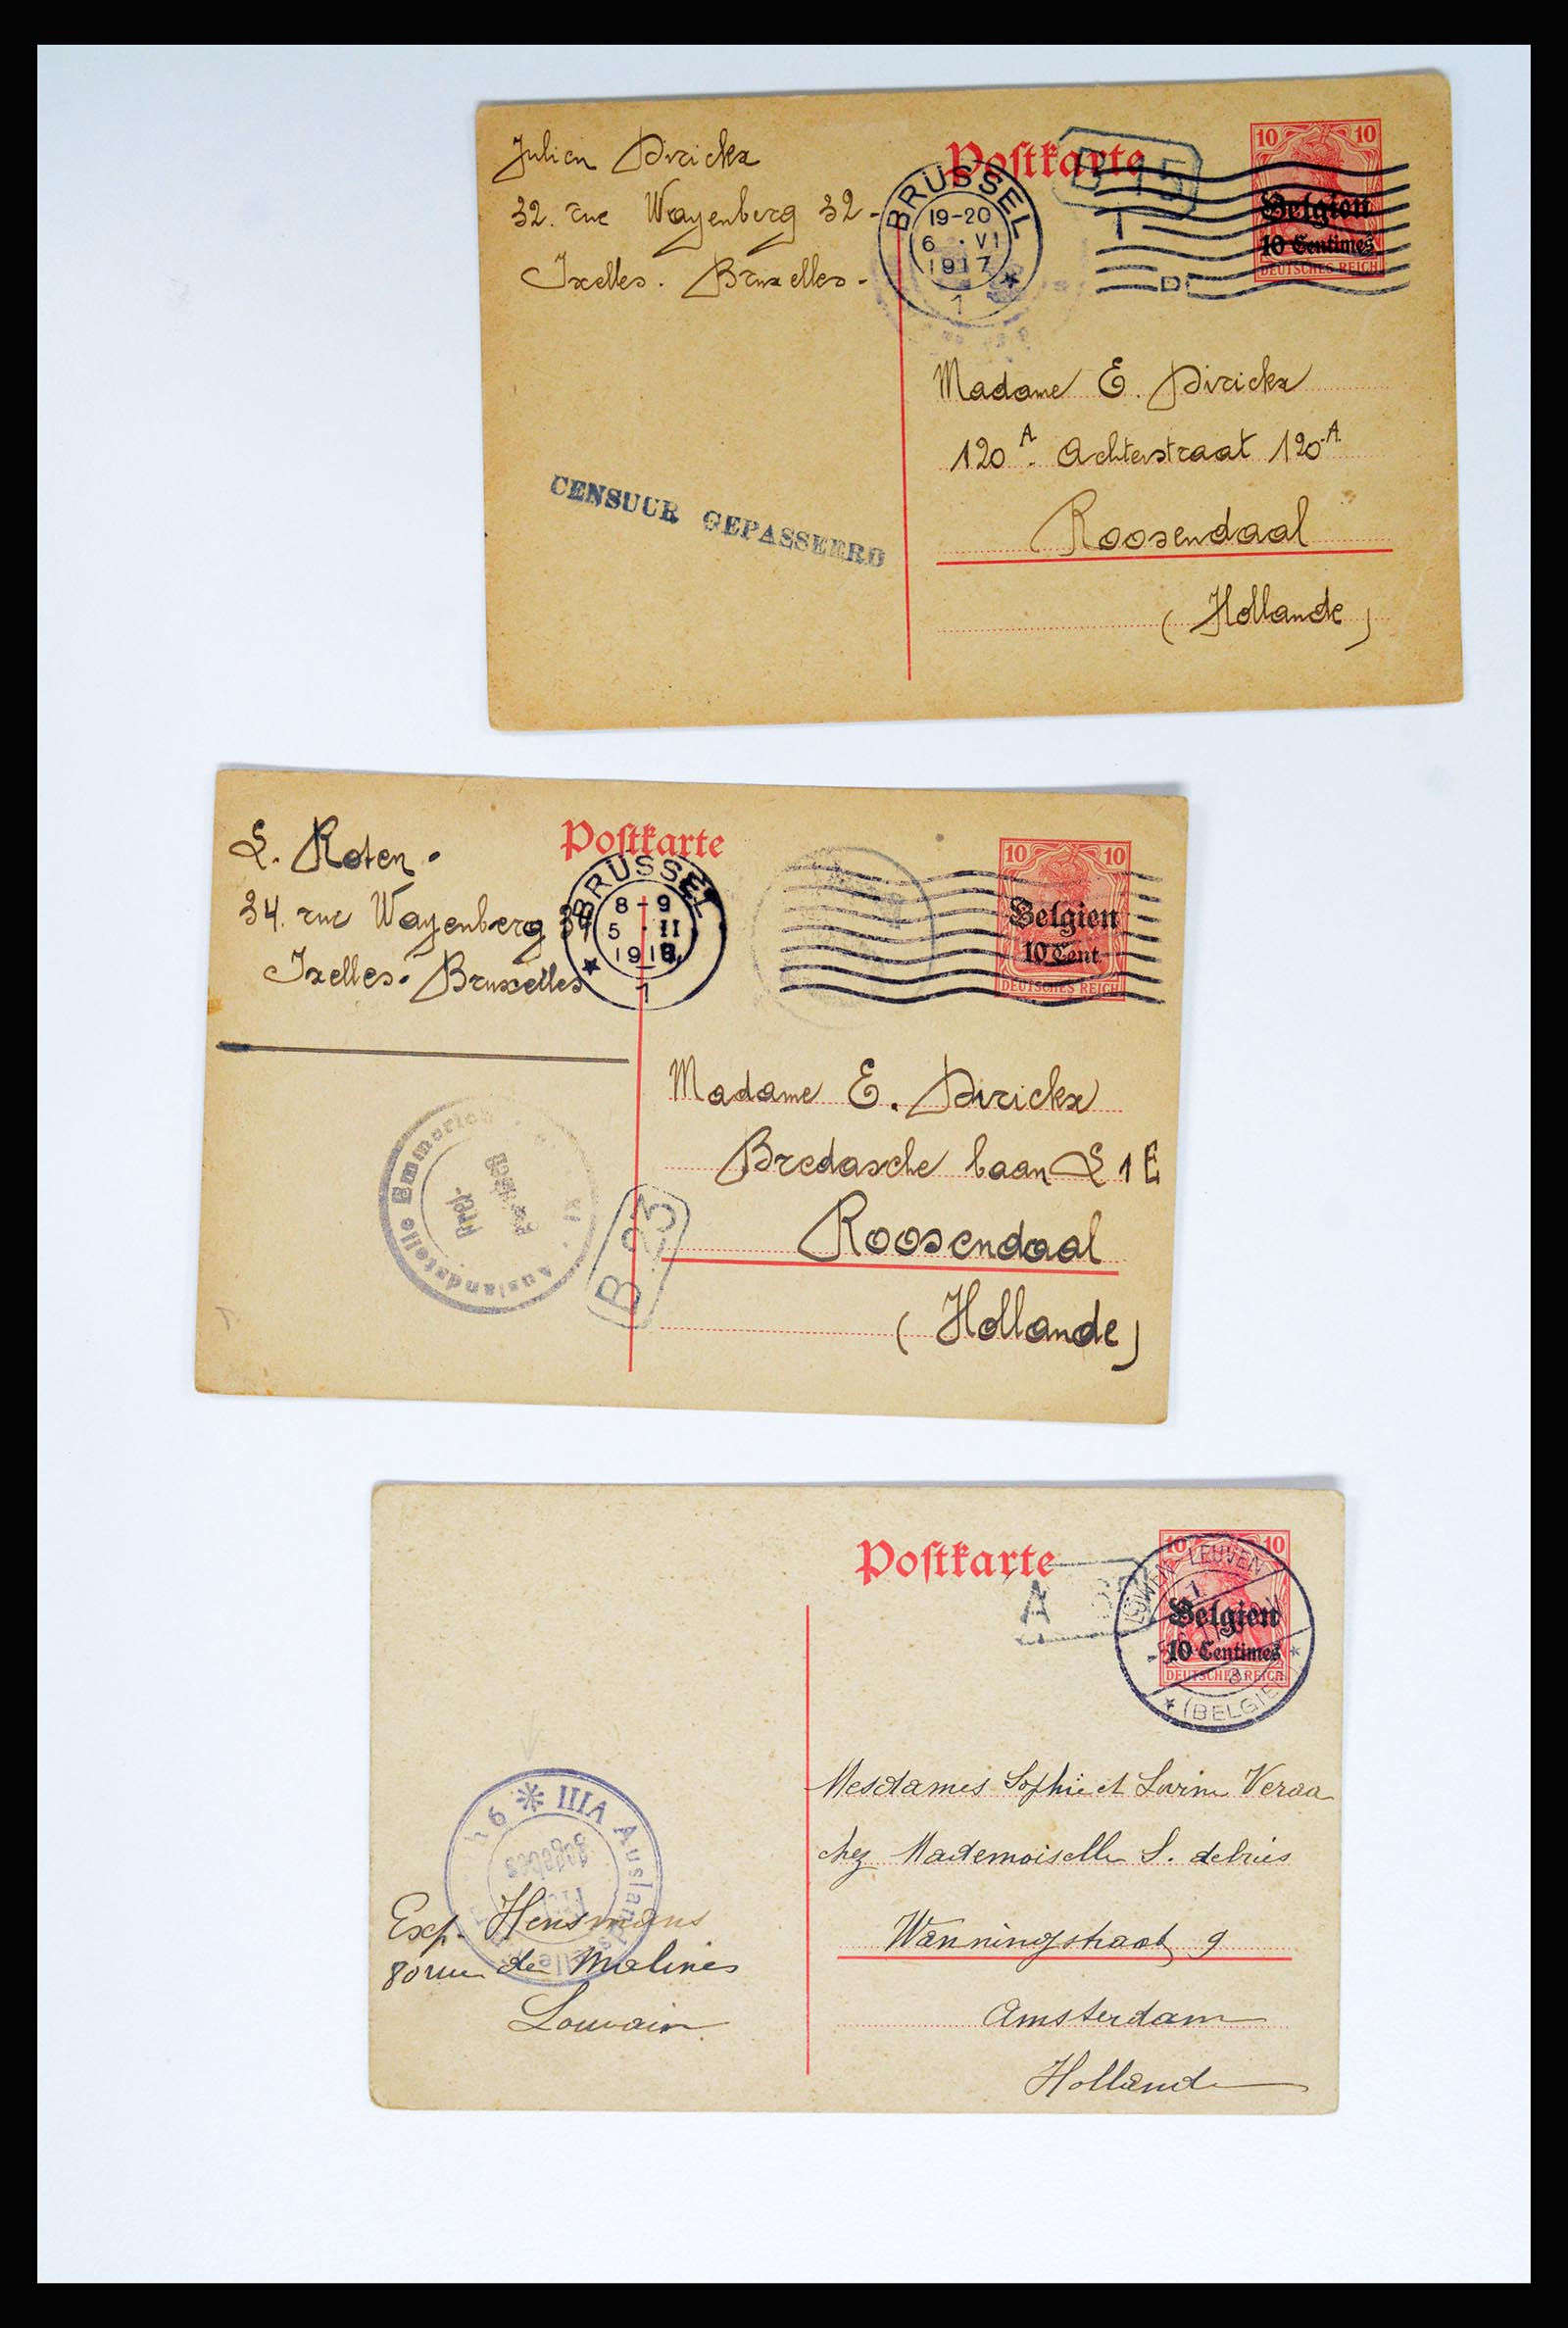 Julien Dirickx
32. rue Wayenberg 32-
Ixelles. Bruxelles-
Postkarte
B 15
BRÜSSEL
19-20
6 . VI
1917
1
10 10
Belgien
10 Centimes
DEUTSCHES REICH
Madame E. Dirickx
120 A. Achterstraat 120 A.
Roosendaal
(Hollande)
CENSUUR GEPASSEERD
L. Roten.
34. rue Wayenberg 34
Ixelles. Bruxelles
Postkarte
BRÜSSEL
8-9
5 . II
1918
1
10 10
Belgien
10 Cent
DEUTSCHES REICH
Madame E. Dirickx
Bredasche baan L 1 E
Roosendaal
(Hollande)
Auslandstelle Emmerich
Frei-
B 23
Postkarte
A
10 10
LÖWEN-LEUVEN
1
Belgien
10 Centimes
DEUTSCHES REICH
(BELGIEN)
Mesdames Sophie et
chez Mademoiselle S. deVries
Wanningstraat 9
Amsterdam
Hollande
VIII Auslandsstelle
Exp. Hensmans
80 rue de Malines
Louvain